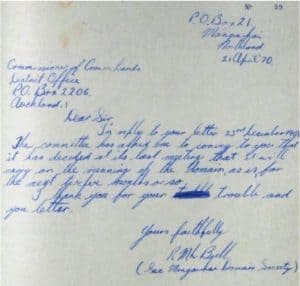 No 39
P.O. Box 21,
Mangawhai
Northland
21 April '70.
Commissioner of Crown Lands
District Office
P.O. Box 2206.
Auckland. 1
Dear Sir.
In reply to your letter 23rd December
The committee has asked me to convey to you that
it has decided at its last meeting that it will
carry on the running of the domain as is for
the next twelve months or so.
I thank you for your trouble and
you letter.
Yours faithfully
(Mangawhai Domain Society)